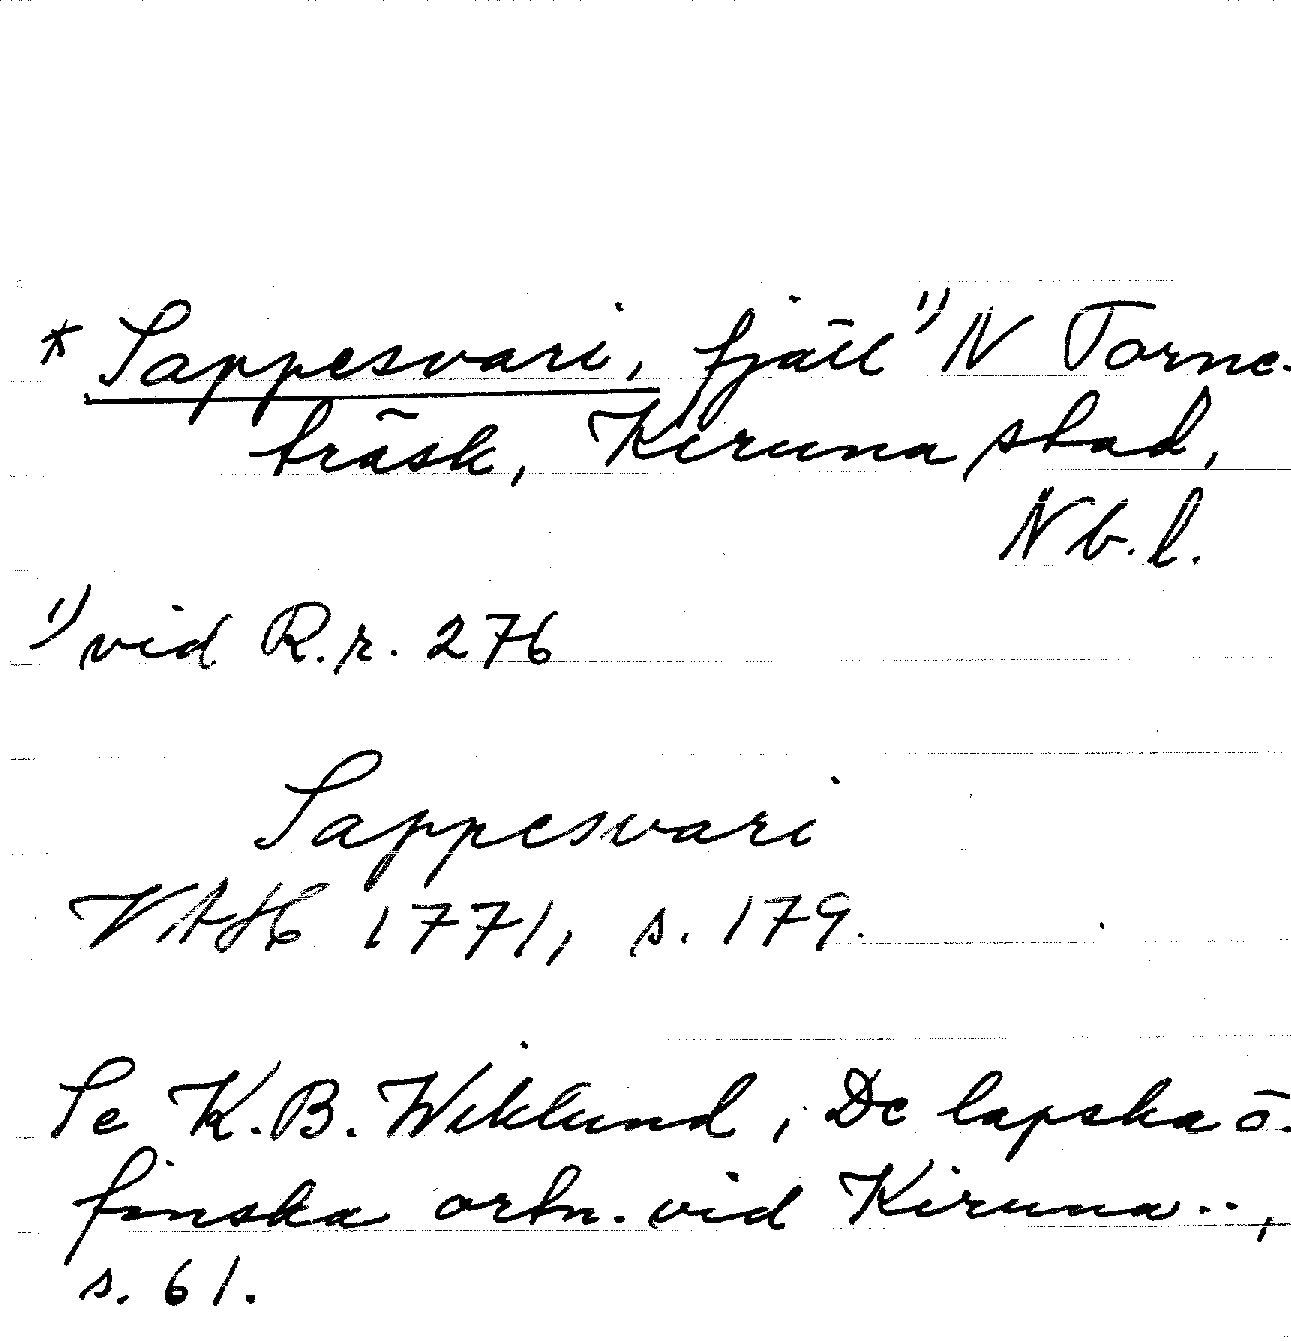 * Sappesvari, fjäll ¹) N Torne-
träsk, Kiruna stad,
Nb. l.
¹) vid R.r. 276
Sappesvari
VAH 1771, s. 179.
Se K.B. Wiklund, De lapska o.
finska ortn. vid Kiruna..,
s. 61.